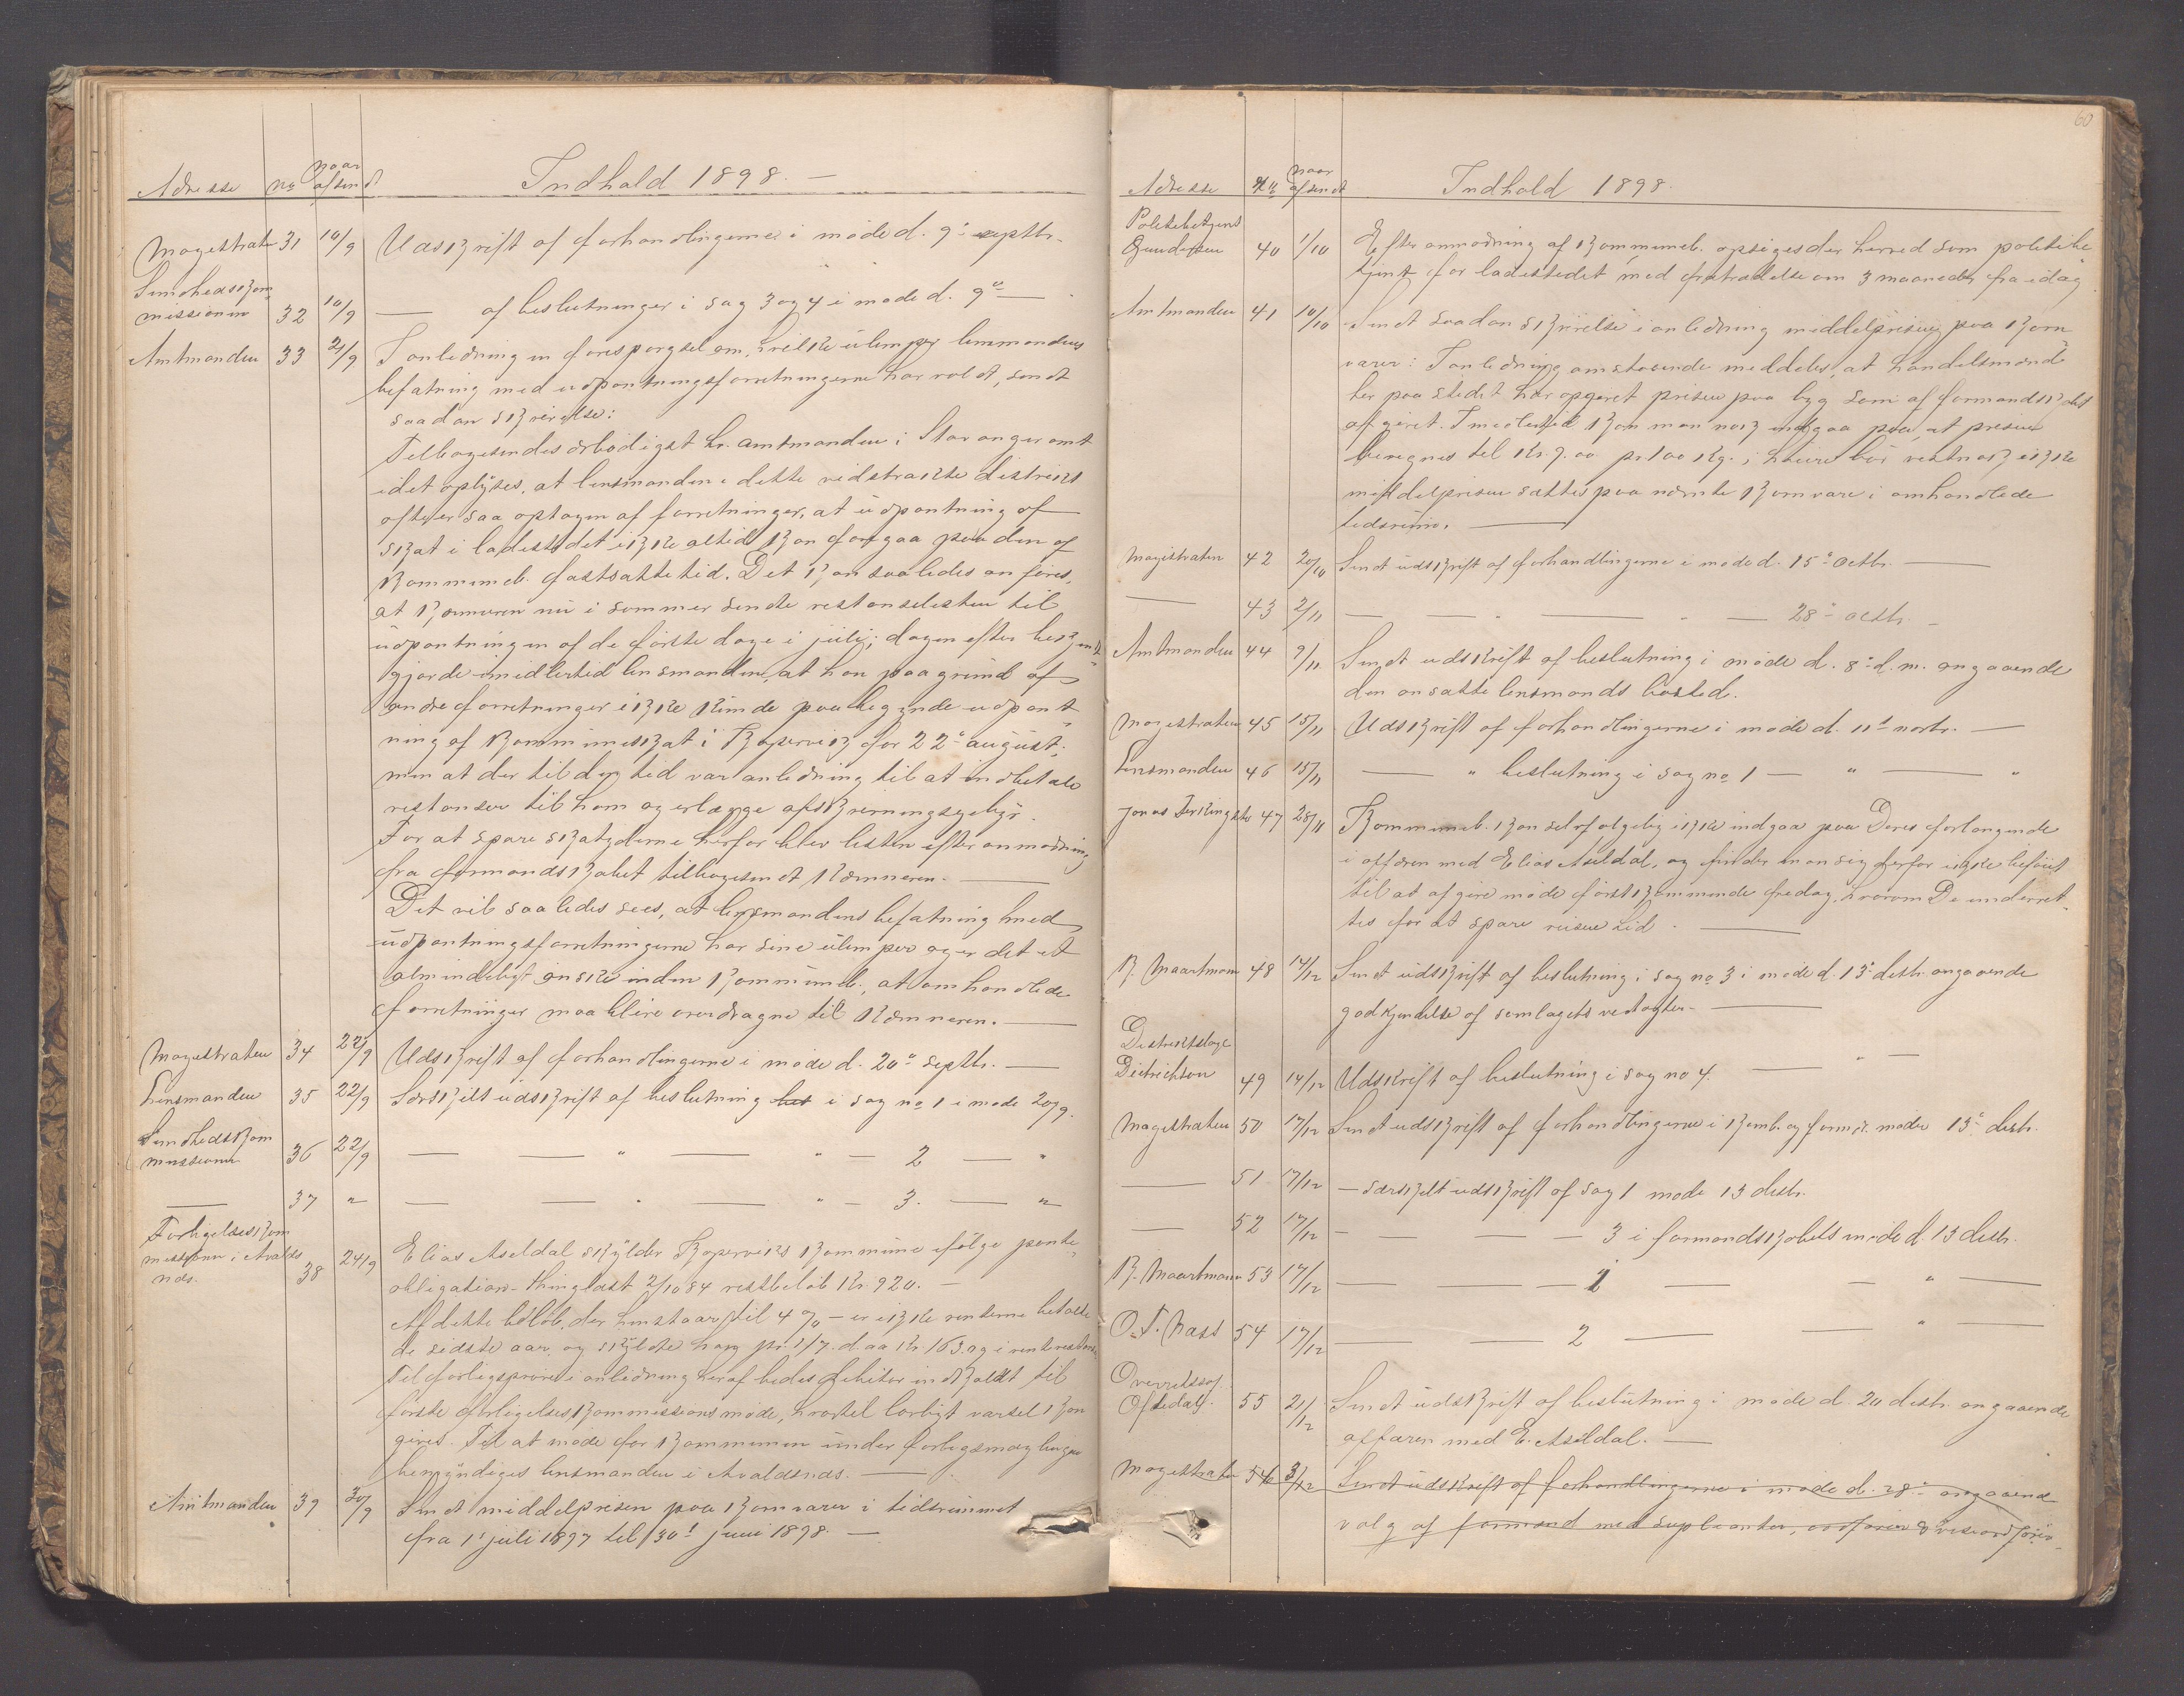 Adresse no naar afsendt Indhald 1898. —
Magestraten 31 10/9 Udskrift af forhandlingerne i møde d. 9de septbr.
Sundhedskom
missionen 32 10/9 — af beslutninger i sag 3 og 4 i møde d. 9de —
Amtmanden 33 21/9 I anledning en forespørgsel om, hvilke ulemper lensmandens
befatning med udpantningsforretningerne har voldt, sendt
saadan skrivelse:
Tilbagesendes ærbødigst hr. amtmanden i Stavanger amt
idet oplyses, at lensmanden i dette vidstrakte distrikt
ofte er saa optagen af forretninger, at udpantning af
skat i ladestedet ikke altid kan foregaa paa den af
kommuneb. fastsatte tid. Det kan saaledes anføres,
at kæmneren nu i sommer sendte restanselisten til
udpantningen af de første dage i juli; dagen efter bekjendt
gjorde imidlertid lensmanden, at han paa grund af
andre forretninger ikke kunde paabegynde udpant
ning af kommuneskat i Kopervik før 22de august,
men at der til den tid var anledning til at indbetale
restanser til ham og erlægge afskrivningsgebyr.
For at spare skatyderne herfor blev listen efter anmodning
fra formandskabet tilbagesendt kæmneren. —
Det vil saaledes sees, at lensmandens befatning med
udpantningsforretningerne har sine ulemper og er det et
almindeligt ønske inden kommuneb., at omhandlede
forretninger maa blive overdragne til kæmneren. —
Magestraten 34 22/9 Udskrift af forhandlingerne i møde d. 20de septbr. —
Lensmanden 35 22/9 Særskilt udskrift af beslutning i sag no 1 i møde 20/9.
Sundhedskom
missionen 36 22/9 — — " — " — 2 — "
— 37 " — — " — " — 3. — "
Forligelseskom
mission i Avalds
nds. 38 24/9 Elias Aseldal skylder Kopervik kommune ifølge pante
obligation thinglæst 2/10 84 restbeløb Kr. 920. —
Af dette beløb, der henstaar til 4 % — er ikke renterne betalte
de sidste aar, og skyldte han pr. 1/7. d. aa Kr. 163.09 i renterestance
Til forligsprøve i anledning heraf bedes debitor indkaldt til
første forligelseskommissions møde, hvortil lovligt varsel kan
gives. Til at møde for kommunen under forligsmæglingen
bemyndiges lensmanden i Avaldsnds. —
Amtmanden 39 30/9 Sendt middelprisen paa kornvarer i tidsrummet
fra 1' juli 1897 til 30' juni 1898. —
60
Adresse No naar afsendt Indhold 1898.
Politibetjent
Gundersen 40 1/10 Efter anmodning af kommuneb. opsiges der herved som politibe
tjent for ladestedet med fratrædelse om 3 maaneder fra idag
Amtmanden 41 10/10 Sendt saadan skrivelse i anledning middelprisen paa korn
varer: I anledning omstaaende meddeles, at handelsmænd
her paa stedet har opgivet prisen paa byg som af formandskabet
afgivet. Imidlertid kan man nok indgaa paa, at prisen
beregnes til Kr. 7.00 pr. 100 kg.; høiere bør vistnok ikke
middelprisen sættes paa nævnte kornvare i omhandlede
tidsrum. —
Magistraten 42 20/10 Sendt udskrift af forhandlingerne i møde d. 15de octbr. —
— 43 2/11 — " — " — 28de octbr. —
Amtmanden 44 9/11 Sendt udskrift af beslutning i møde d. 8de d. m. angaaende
den ansatte lensmands bosted.
Magestraten 45 15/11 Udskrift af forhandlingerne i møde d. 11te novbr. —
Lensmanden 46 15/11 — " beslutning i sag no 1 — " — "
Jonas Terkingstø 47 28/11 Kommuneb. kan selvfølgelig ikke indgaa paa Deres forlangende
i affæren med Elias Aseldal, og finder man sig derfor ikke beføiet
til at afgive møde førstkommende fredag, hvorom De underret
tes for at spare reisen hid. —
R. Maartman 48 14/12 Sendt udskrift af beslutning i sag no 3 i møde d. 13de decbr. angaaende
godkjendelse af samlagets vedtægter. —
Distriktslæge
Dietrichson 49 14/12 Udskrift af beslutning i sag no 4. — " —
Magestraten 50 17/12 Sendt udskrift af forhandlingerne i komb. og formsk. møder 13de decbr.
— 51 17/12 — særskilt udskrift af sag 1 møde 13 decbr.
— 52 17/12 — — — 3 i formandskabets møde d. 13 decbr.
R. Maartman 53 17/12 — — 1 — " —
O. T. Næss 54 17/12 — — 2 — — " —
Overretssag.
Oftedahl. 55 21/12 Sendt udskrift af beslutning i møde d. 20 decbr. angaaende
affæren med E. Aseldal. —
Magestraten 56 3/12 Sendt udskrift af forhandlingerne i møde d. 28de angaaend
valg af formænd med supleanter, ordfører & viseordfører.